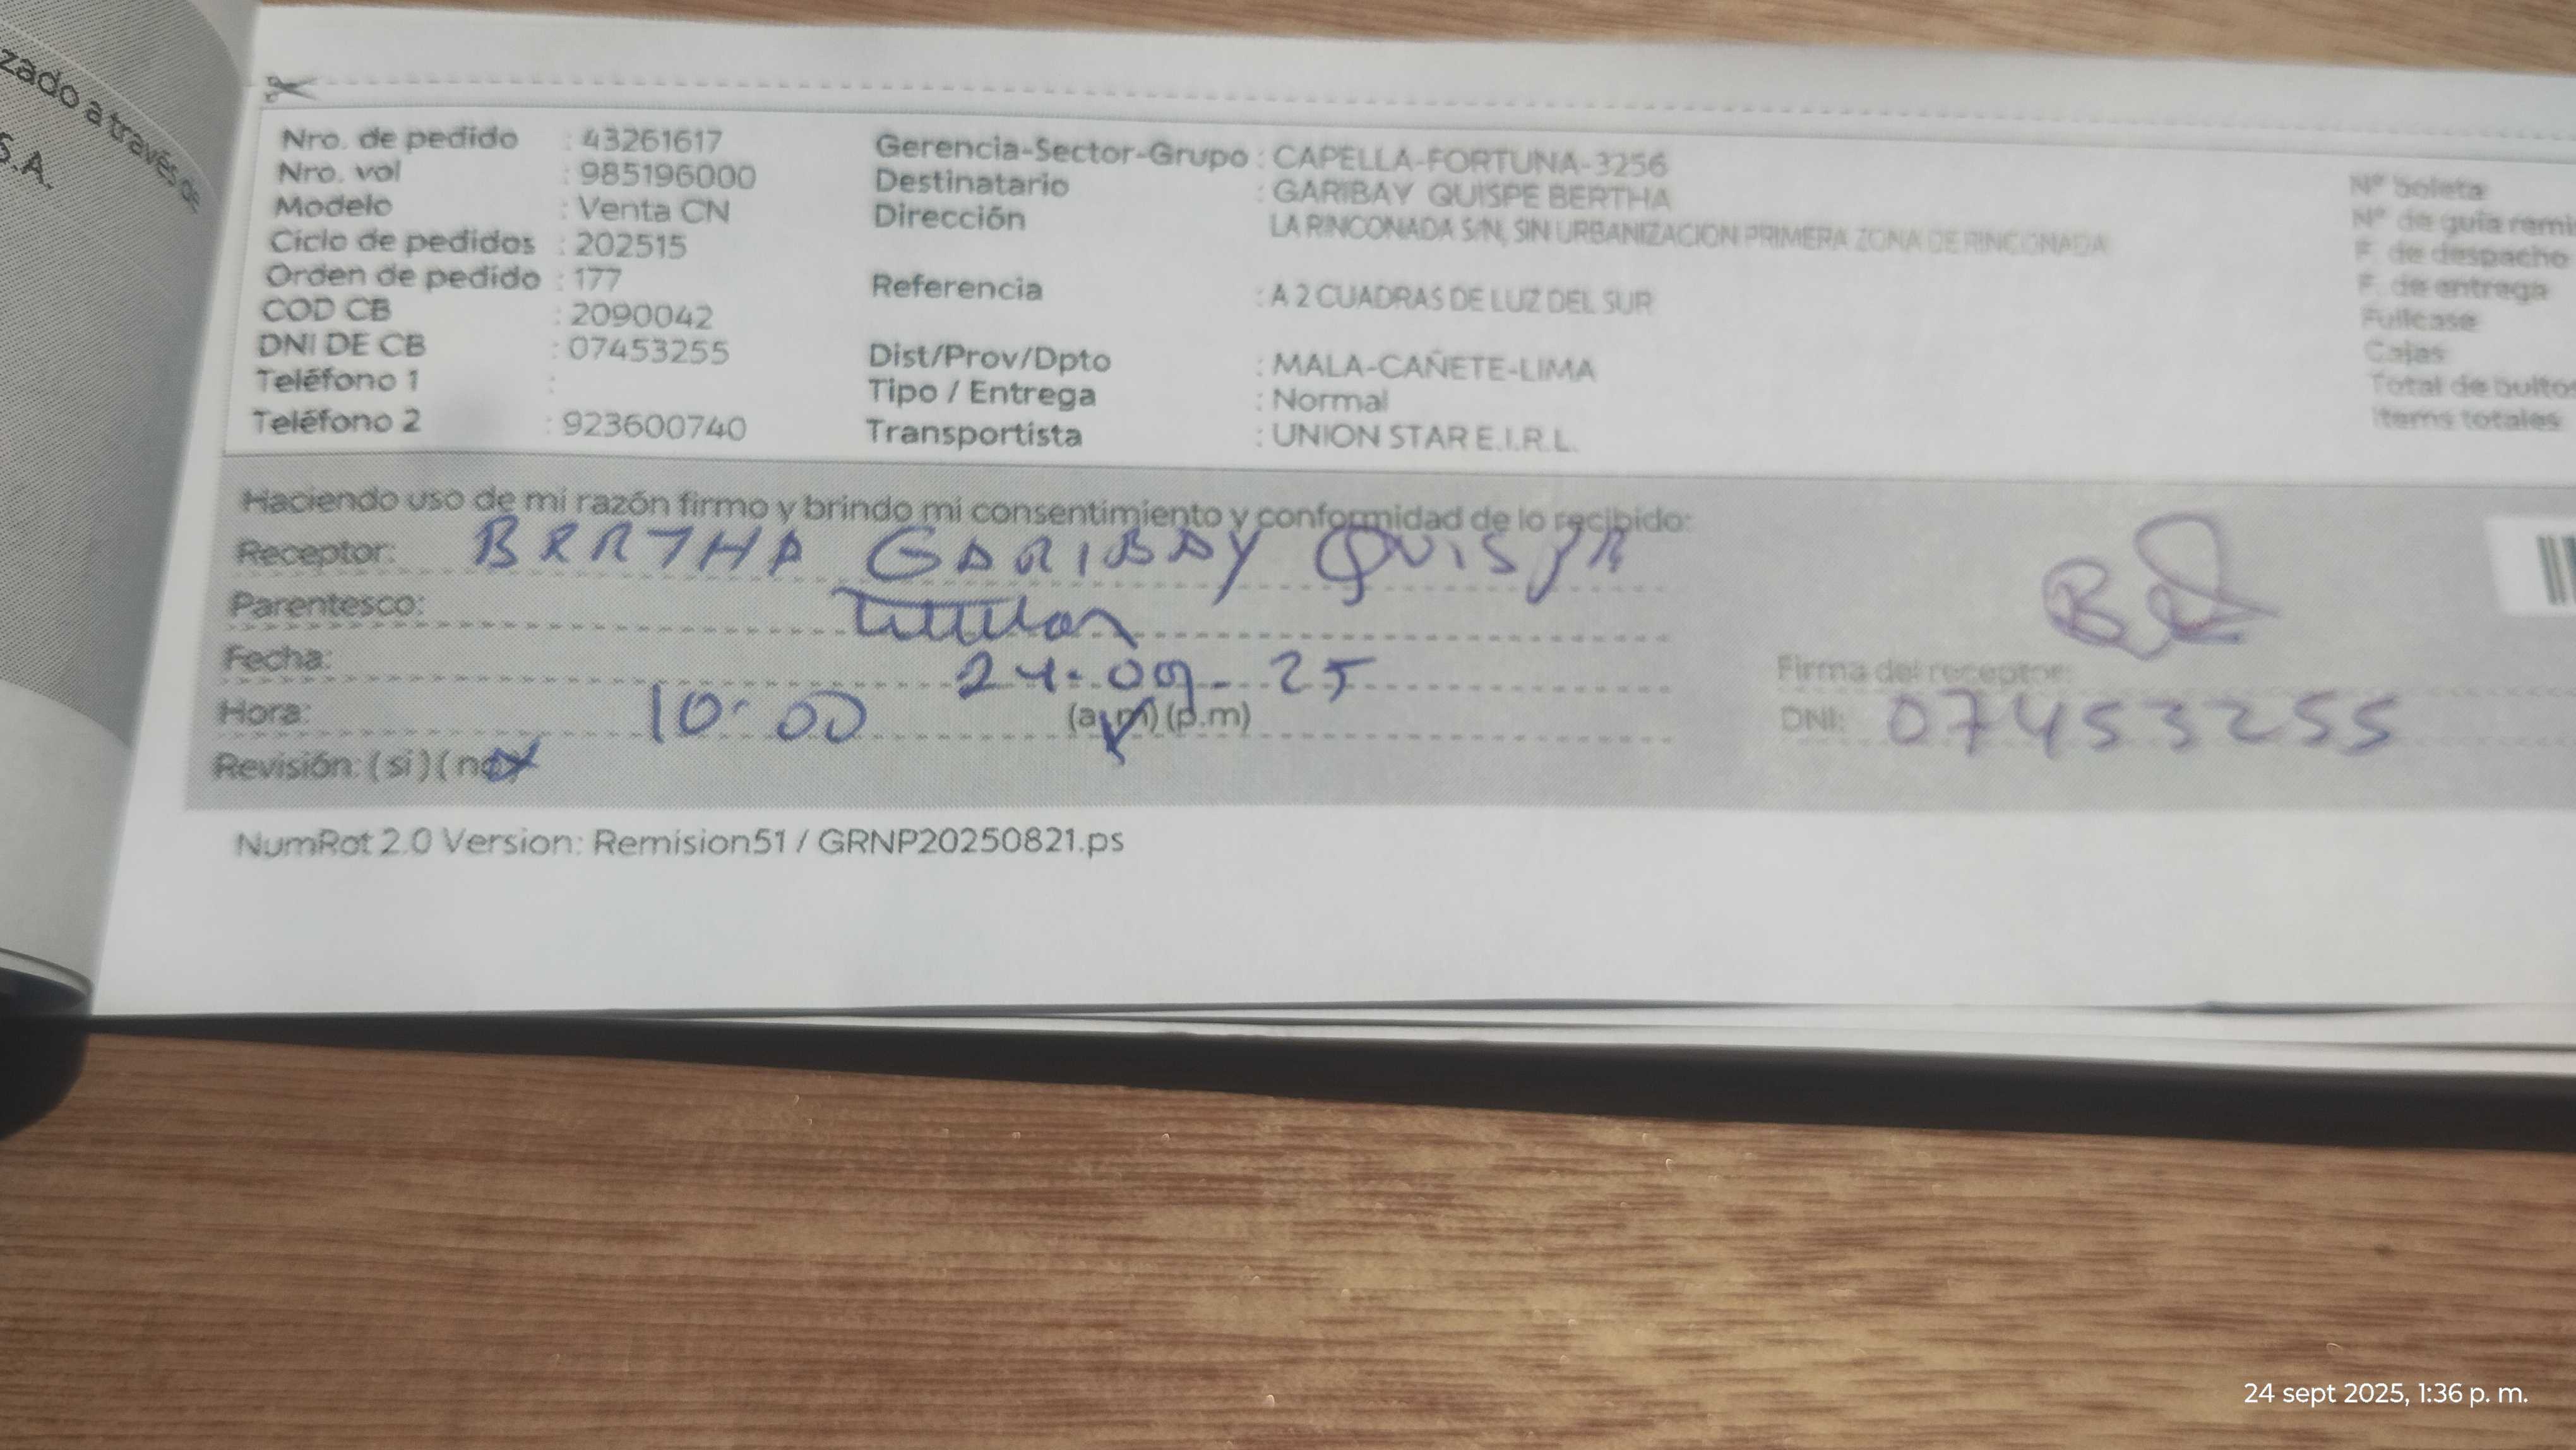 zado a través de
S.A.
Nro. de pedido : 43261617
Nro. vol : 985196000
Modelo : Venta CN
Ciclo de pedidos : 202515
Orden de pedido : 177
COD CB : 2090042
DNI DE CB : 07453255
Teléfono 1 :
Teléfono 2 : 923600740
Gerencia-Sector-Grupo : CAPELLA-FORTUNA-3256
Destinatario : GARIBAY QUISPE BERTHA
Dirección LA RINCONADA S/N, SIN URBANIZACION PRIMERA ZONA DE RINCONADA
Referencia : A 2 CUADRAS DE LUZ DEL SUR
Dist/Prov/Dpto : MALA-CAÑETE-LIMA
Tipo / Entrega : Normal
Transportista : UNION STAR E.I.R.L.
Nº boleta
Nº de guía remi
F. de despacho
F. de entrega
Fullcase
Cajas
Total de bultos
Items totales
Haciendo uso de mi razón firmo y brindo mi consentimiento y conformidad de lo recibido:
Receptor: BERTHA GARIBAY QUISPE
Parentesco: Titular
Fecha: 24-09-25
Hora: 10:00 (a.m) (p.m)
Revisión: (si) (no)
Firma del receptor:
DNI: 07453255
NumRot 2.0 Version: Remision51 / GRNP20250821.ps
24 sept 2025, 1:36 p. m.